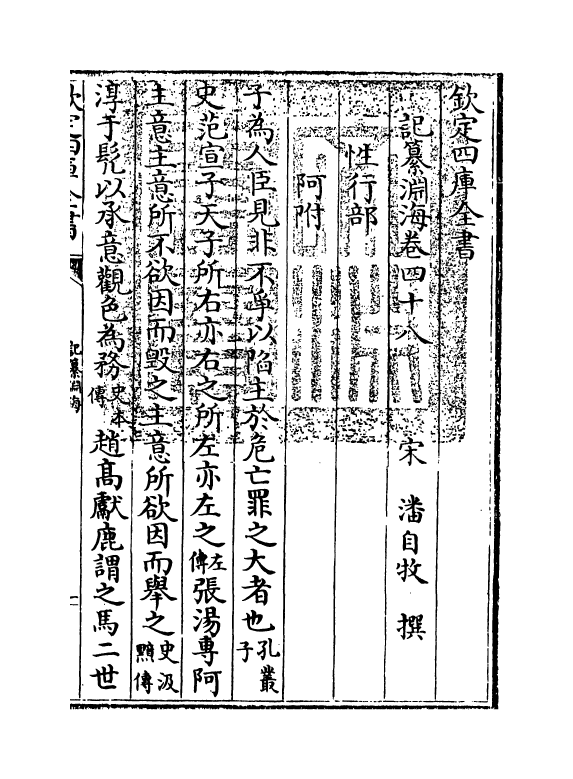 欽定四庫全書
記纂淵海卷四十八　宋　潘自牧　撰
性行部
阿附
子為人臣見非不爭以陷主於危亡罪之大者也孔叢子
史范宣子天子所右亦右之所左亦左之左傳張湯專阿
主意主意所不欲因而毀之主意所欲因而舉之史汲黯傳
淳于髡以承意觀色為務史本傳趙高獻鹿謂之馬二世
欽定四庫全書
記纂淵海
一